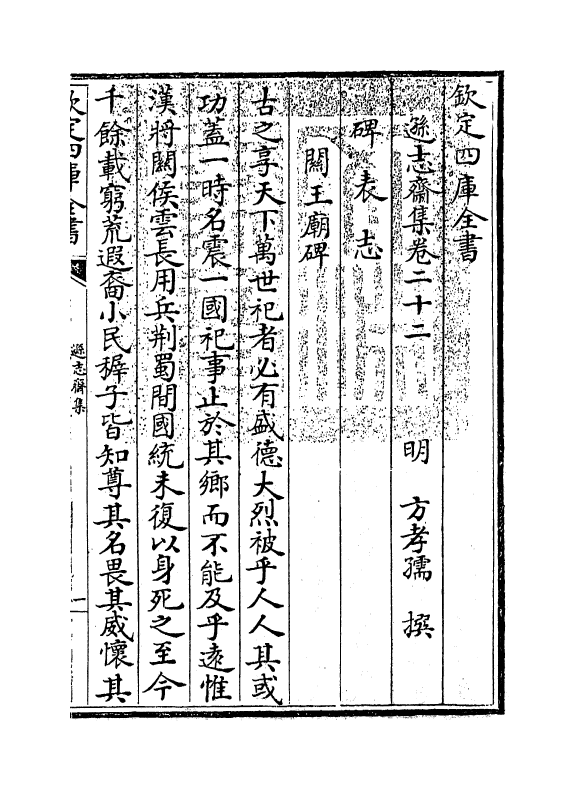 欽定四庫全書
遜志齋集卷二十二　明　方孝孺　撰
碑表志
關王廟碑
古之享天下萬世祀者必有盛德大烈被乎人人其或
功蓋一時名震一國祀事止於其鄉而不能及乎遠惟
漢將關侯雲長用兵荆蜀間國統未復以身死之至今
千餘載窮荒遐裔小民穉子皆知尊其名畏其威懷其
欽定四庫全書
遜志齋集
一